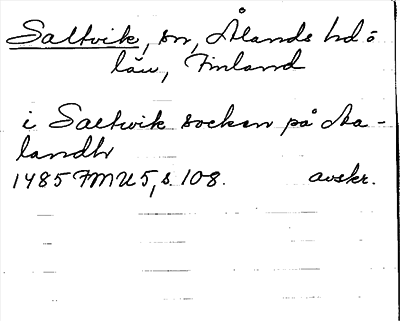 Saltvik, sn, Ålands hd o
län, Finland
i Saltwik socken på Aa-
landh
1485 FMU 5, s. 108. avskr.